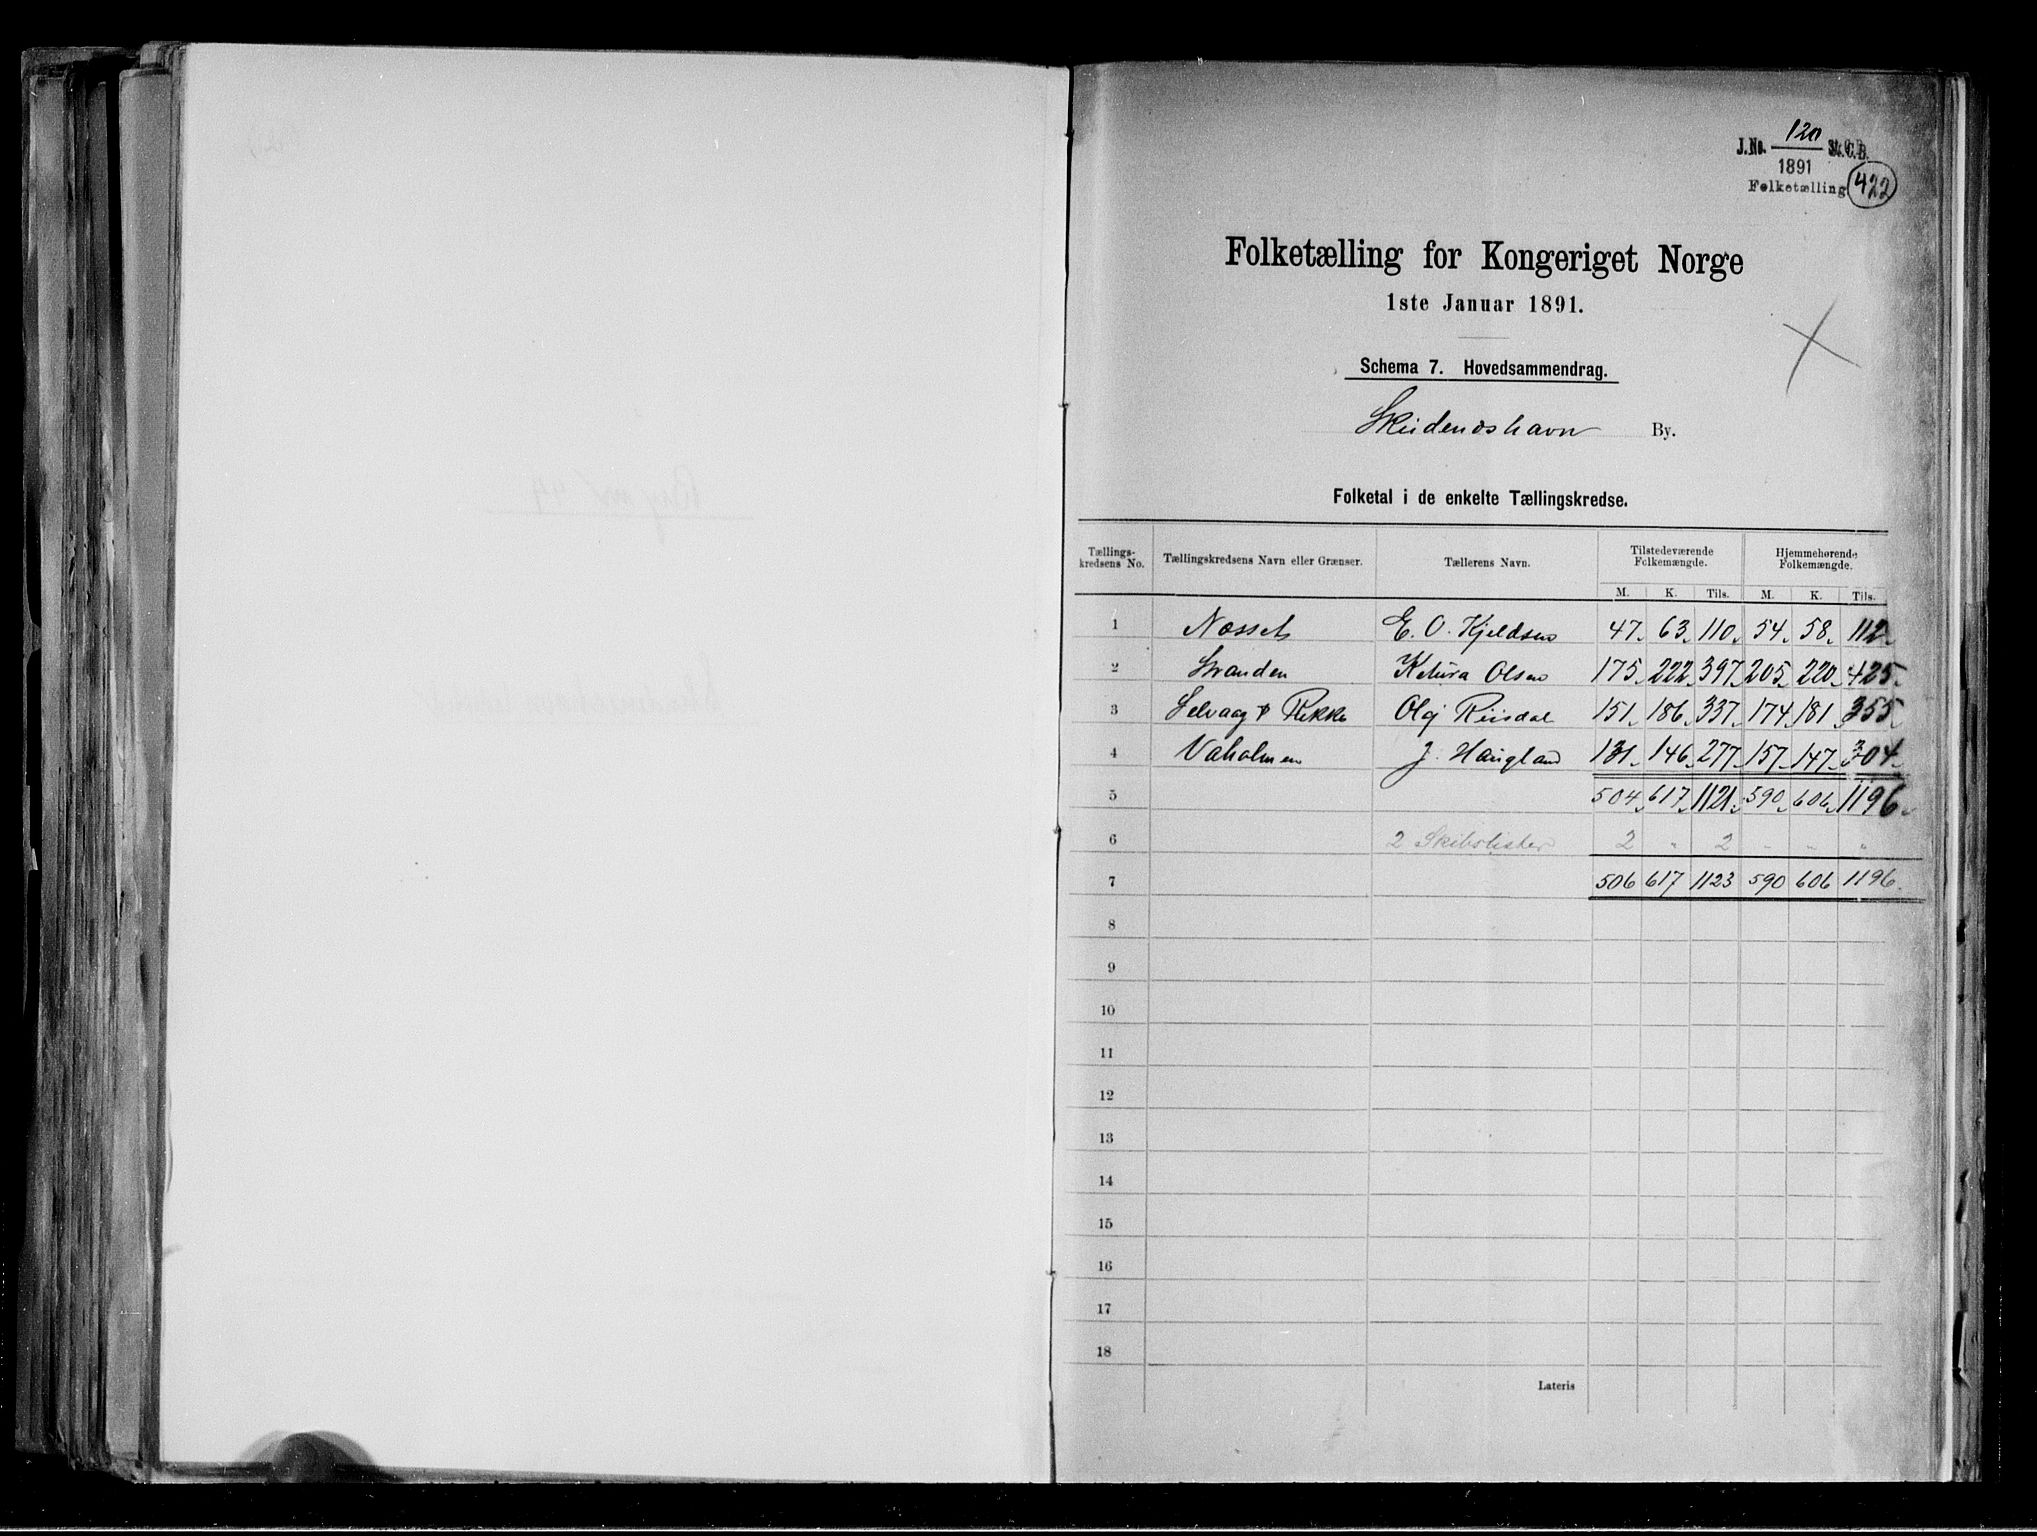 J.No. 120 S.C.B.
1891
Folketælling 422
Folketælling for Kongeriget Norge
1ste Januar 1891.
Schema 7. Hovedsammendrag.
Skudeneshavn By.
Folketal i de enkelte Tællingskredse.
Tællingskredsens No. Tællingskredsens Navn eller Grænser. Tællerens Navn. Tilstedeværende Folkemængde. Hjemmehørende Folkemængde.
M. K. Tils. M. K. Tils.
1 Næsset E. O. Kjeldsen 47 63 110 54 58 112
2 Stranden Ketura Olsen 175 222 397 205 220 425
3 Selvaag & Rekke Olaj Riisdal 151 186 337 174 181 355
4 Vaholmen J. Haugland 131 146 277 157 147 304
5 504 617 1121 590 606 1196
6 2 Skibslister 2 " 2 " " "
7 506 617 1123 590 606 1196
8
9
10
11
12
13
14
15
16
17
18
Lateris